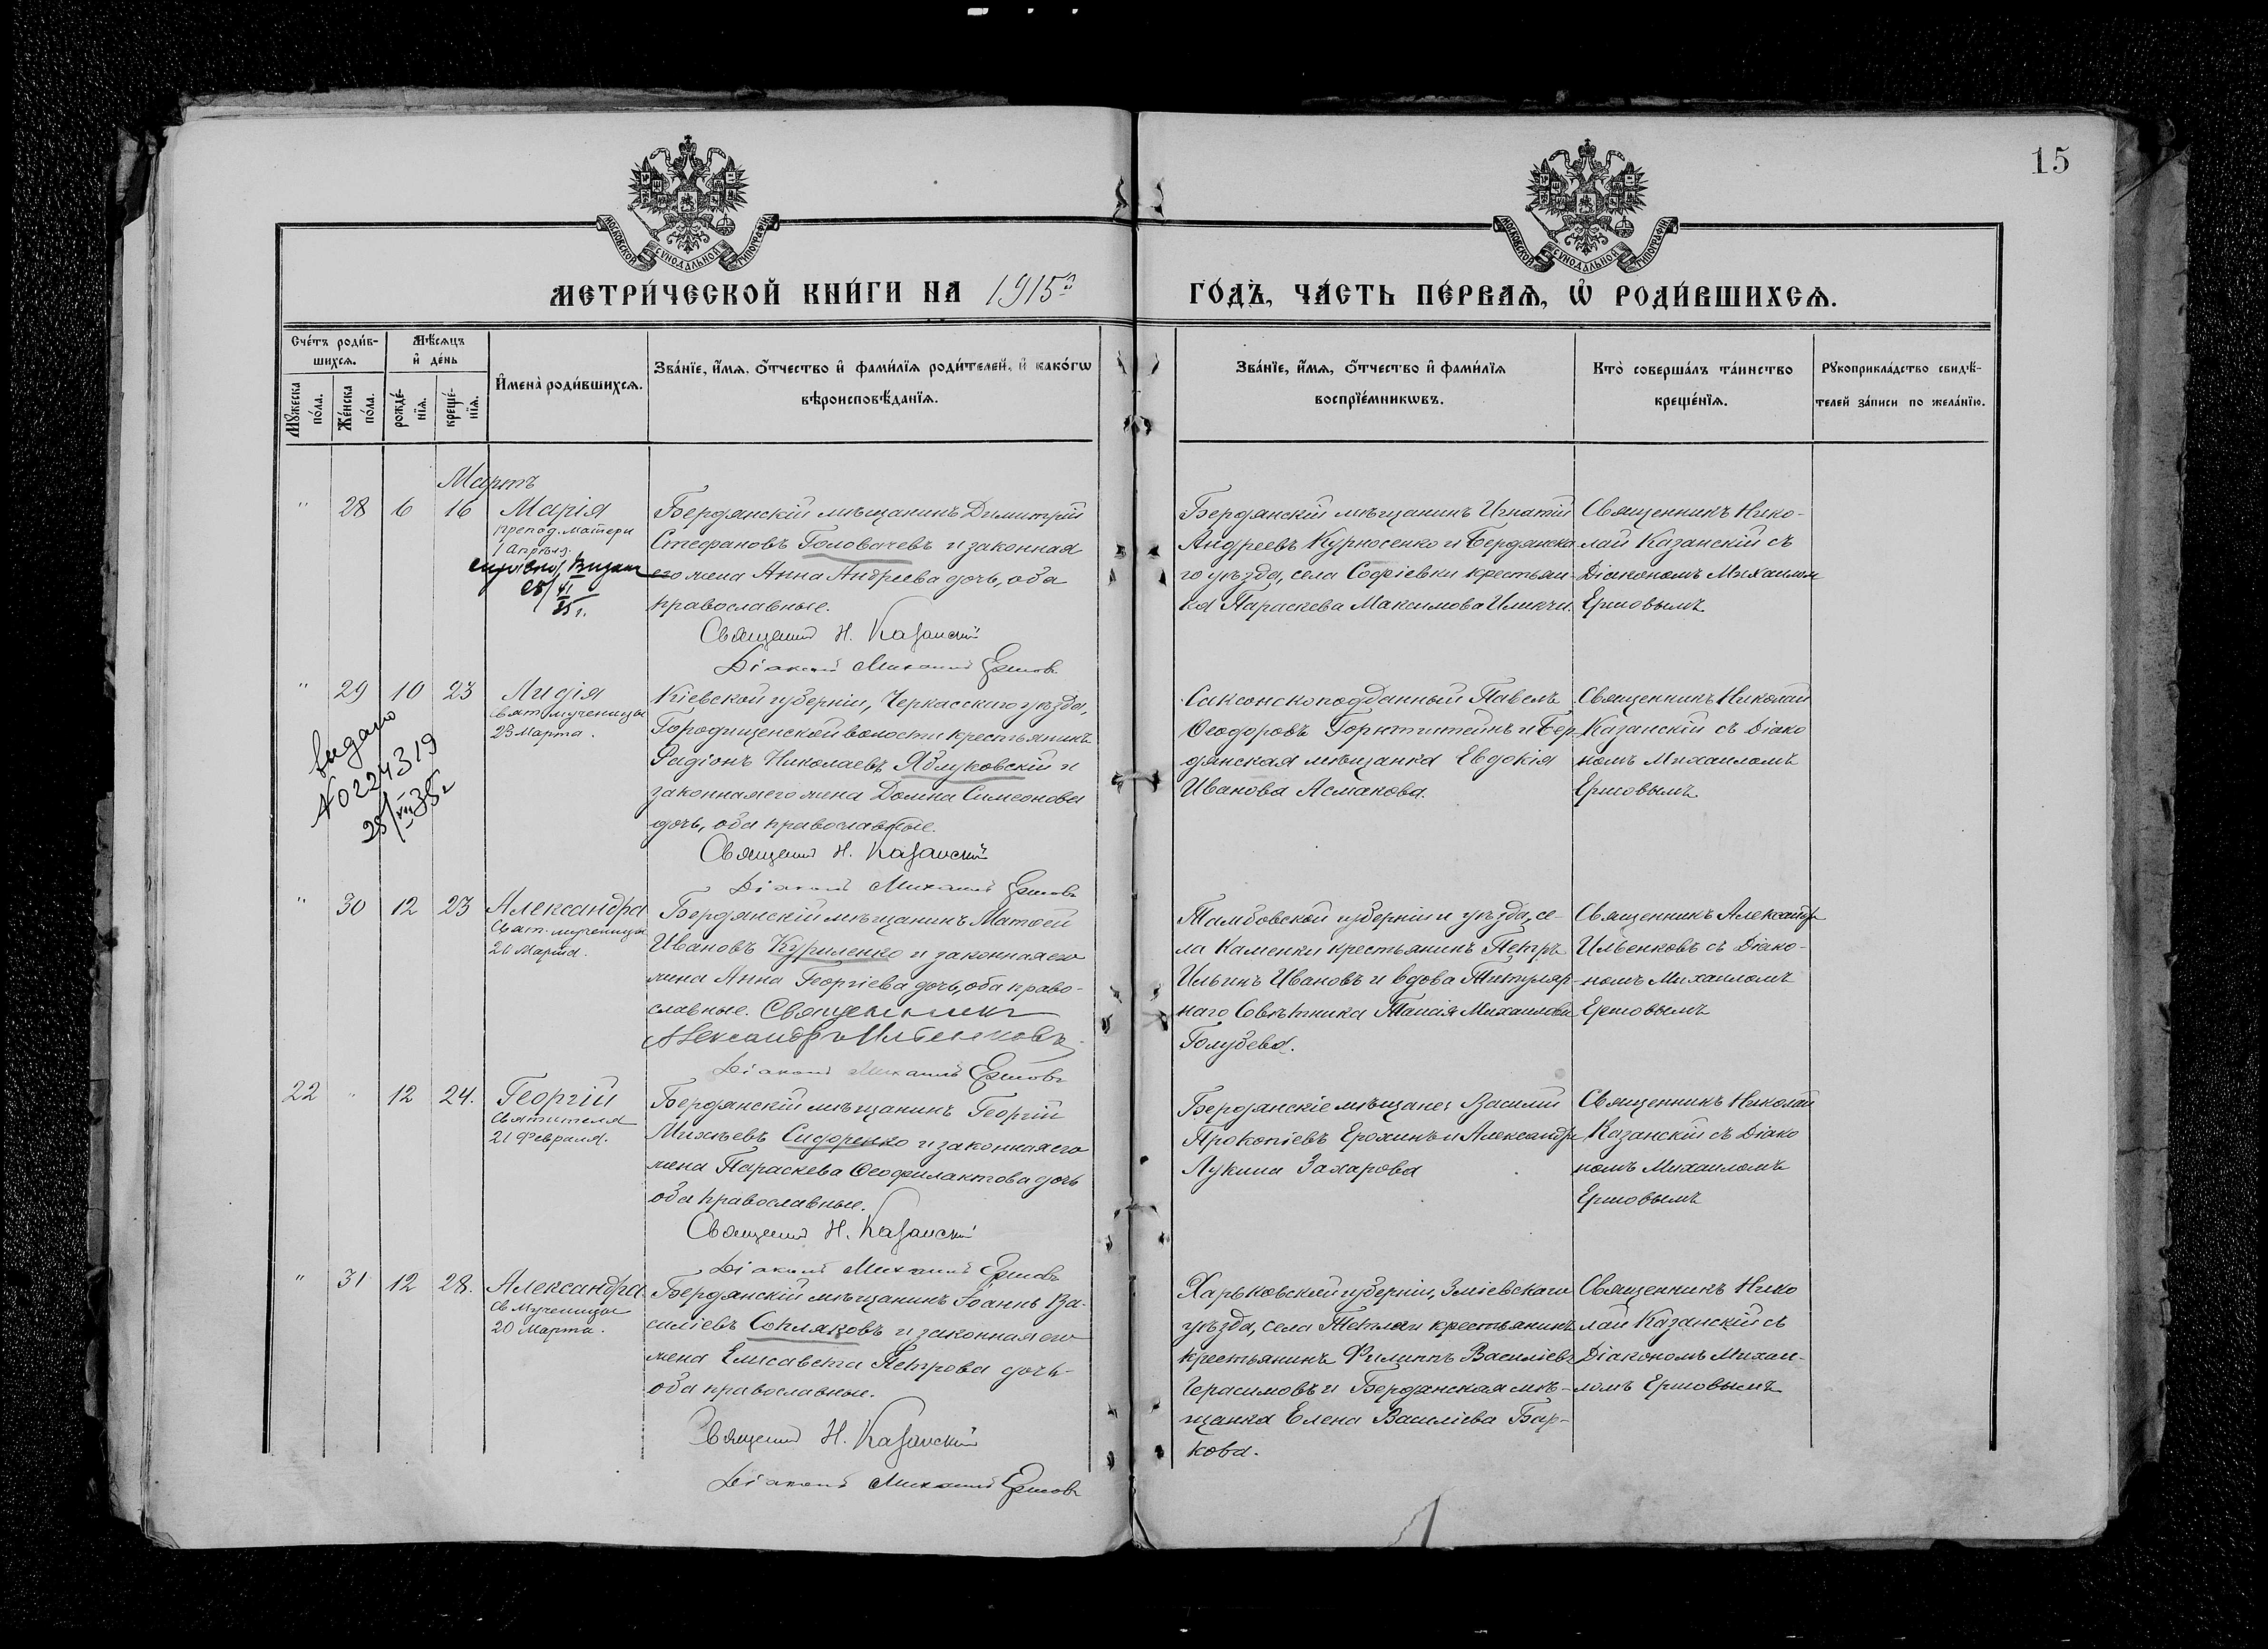 15
МОСКОВСКОЙ СУНОДАЛЬНОЙ ТИПОГРАФIИ
МОСКОВСКОЙ СУНОДАЛЬНОЙ ТИПОГРАФIИ
МЕТРИ́ЧЕСКОЙ КНИ́ГИ НА 1915й
ГО́ДЪ, ЧА́СТЬ ПЕ́РВАѦ, Ѡ҆ РОДИ́ВШИХСѦ.
Сче́тъ роди́в-
шихсѧ.
Мѣ́сѧцъ
и҆ де́нь
Мꙋ́жеска
по́ла.
Же́нска
по́ла.
рожде́-
нїѧ.
креще́-
нїѧ.
И҆мена̀ роди́вшихсѧ.
Зва́нїе, и҆́мѧ, ѻ҆́тчество и҆ фами́лїѧ роди́телей, и҆ како́гѡ
вѣроисповѣ́данїѧ.
Зва́нїе, и҆́мѧ, ѻ҆́тчество и҆ фами́лїѧ
воспрїе́мникѡвъ.
Кто̀ соверша́лъ та́инство
креще́нїѧ.
Рꙋкоприкла́дство свидѣ́-
телей за́писи по жела́нїю.
Мартъ
" 28 6 16 Марія
препод. матери
1 Апрѣля.
VI
35 г.
Бердянскій мѣщанинъ Димитрій
Стефановъ Головачевъ и законная
его жена Анна Андреева дочь, оба
православные.
Священик Н. Казанскій
Діаконъ Михаилъ Ершовъ
Бердянскій мѣщанинъ Игнатій
Андреевъ Курносенко и Бердянска
го уѣзда, села Софіевки крестьян-
ка Параскева Максимова
Священникъ Нико-
лай Казанскій съ
Діакономъ Михаилом
Ершовымъ
" 29 10 23 Лидія
Свят. мученицы
23 Марта.
выдано
№ 0224319
25/VIII 35 г
Кіевской губерніи, Черкасскаго уѣзда,
Городищенской волости крестьянинъ
Радіонъ Николаевъ Яблуковскій и
законная его жена Домна Симеонова
дочь, оба православные.
Священик Н. Казанскій
Діаконъ Михаилъ Ершовъ
Саксонскоподданный Павелъ
Ѳеодоровъ Горнштейнъ и Бер-
дянская мѣщанка Евдокія
Иванова Асманова.
Священникъ Николай
Казанскій съ Діако
номъ Михаиломъ
Ершовымъ
" 30 12 23 Александра
Свят. мученицы
20 Марта.
Бердянскій мѣщанинъ Матѳей
Ивановъ Куриленко и законная его
жена Анна Георгіева дочь, оба право-
славные. Священникъ
Александръ Ильенковъ
Діаконъ Михаилъ Ершовъ
Тамбовской губерніи и уѣзда, се-
ла Каменки крестьянинъ Петръ
Ильинъ Ивановъ и вдова Титуляр-
наго Совѣтника Таисія Михаилова
Голубева.
Священникъ Александръ
Ильенковъ съ Діако-
номъ Михаиломъ
Ершовымъ
22 " 12 24. Георгій
Святителя
21 Февраля.
Бердянскій мѣщанинъ Георгій
Михѣевъ Сидоренко и законная его
жена Параскева Ѳеофилактова дочь
оба православные.
Священик Н. Казанскій
Діаконъ Михаилъ Ершовъ
Бердянскіе мѣщане: Василій
Прокопіевъ Ерохинъ и Александра
Лукина Захарова
Священникъ Николай
Казанскій съ Діако
номъ Михаиломъ
Ершовымъ
" 31 12 28. Александра
Св Мученицы
20 Марта.
Бердянскій мѣщанинъ Іоаннъ Ва-
силіевъ Сопляковъ и законная его
жена Елисавета Петрова дочь-
оба православные.
Священик Н. Казанскій
Діаконъ Михаилъ Ершовъ
Харьковской губерніи, Зміевскаго
уѣзда, села крестьянинъ
крестьянинъ Филиппъ Василіевъ
Герасимовъ и Бердянская мѣ-
щанка Елена Василіева Бар-
кова.
Священникъ Нико
лай Казанскій съ
Діакономъ Михаи-
ломъ Ершовымъ